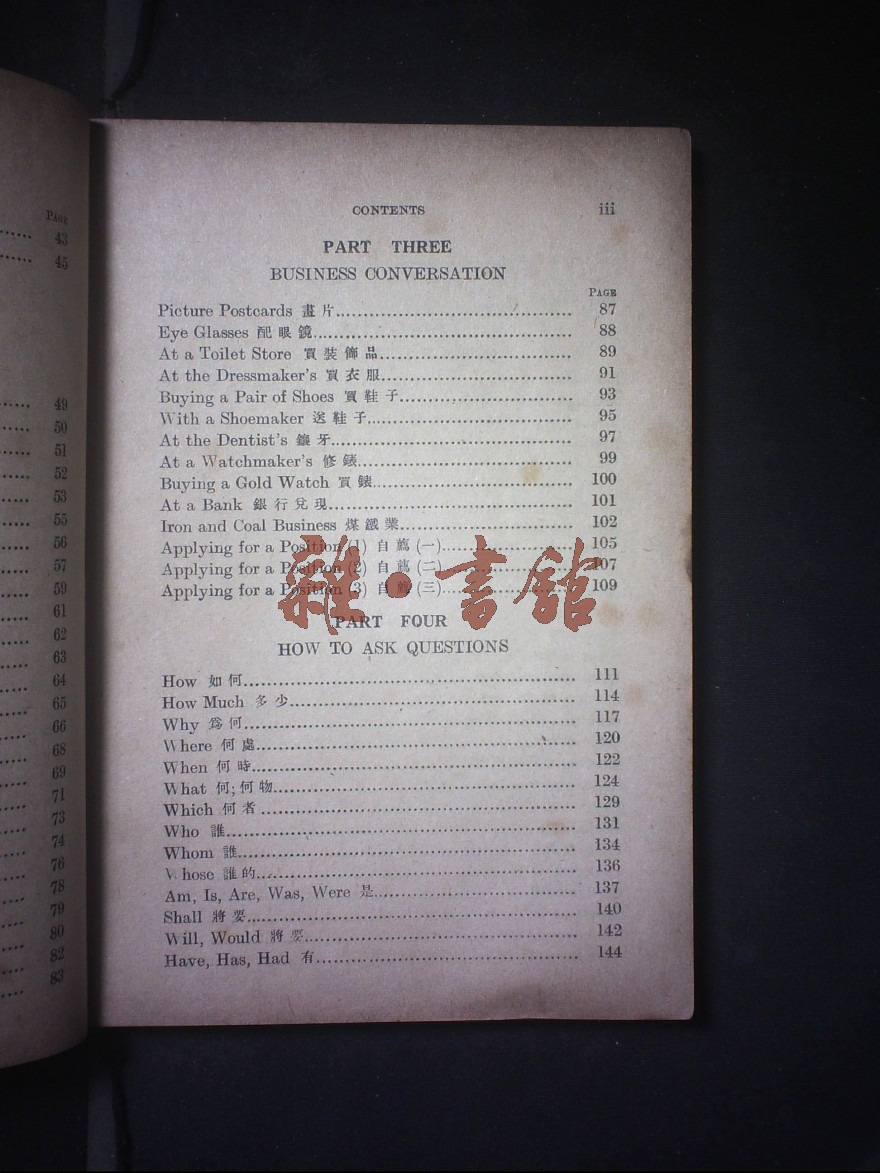 PAGE
43
45
49
50
51
52
53
55
56
57
59
61
62
63
64
65
66
68
69
71
73
74
76
78
79
80
82
83
CONTENTS iii
PART THREE
BUSINESS CONVERSATION
PAGE
Picture Postcards 畫片........................................ 87
Eye Glasses 配眼鏡........................................ 88
At a Toilet Store 買裝飾品........................................ 89
At the Dressmaker's 買衣服........................................ 91
Buying a Pair of Shoes 買鞋子........................................ 93
With a Shoemaker 送鞋子........................................ 95
At the Dentist's 鑲牙........................................ 97
At a Watchmaker's 修錶........................................ 99
Buying a Gold Watch 買錶........................................ 100
At a Bank 銀行兌現........................................ 101
Iron and Coal Business 煤鐵業........................................ 102
Applying for a Position (1) 自薦(一)........................................ 105
Applying for a Position (2) 自薦(二)........................................ 107
Applying for a Position (3) 自薦(三)........................................ 109
雜·書館
PART FOUR
HOW TO ASK QUESTIONS
How 如何........................................ 111
How Much 多少........................................ 114
Why 爲何........................................ 117
Where 何處........................................ 120
When 何時........................................ 122
What 何;何物........................................ 124
Which 何者........................................ 129
Who 誰........................................ 131
Whom 誰........................................ 134
Whose 誰的........................................ 136
Am, Is, Are, Was, Were 是........................................ 137
Shall 將要........................................ 140
Will, Would 將要........................................ 142
Have, Has, Had 有........................................ 144